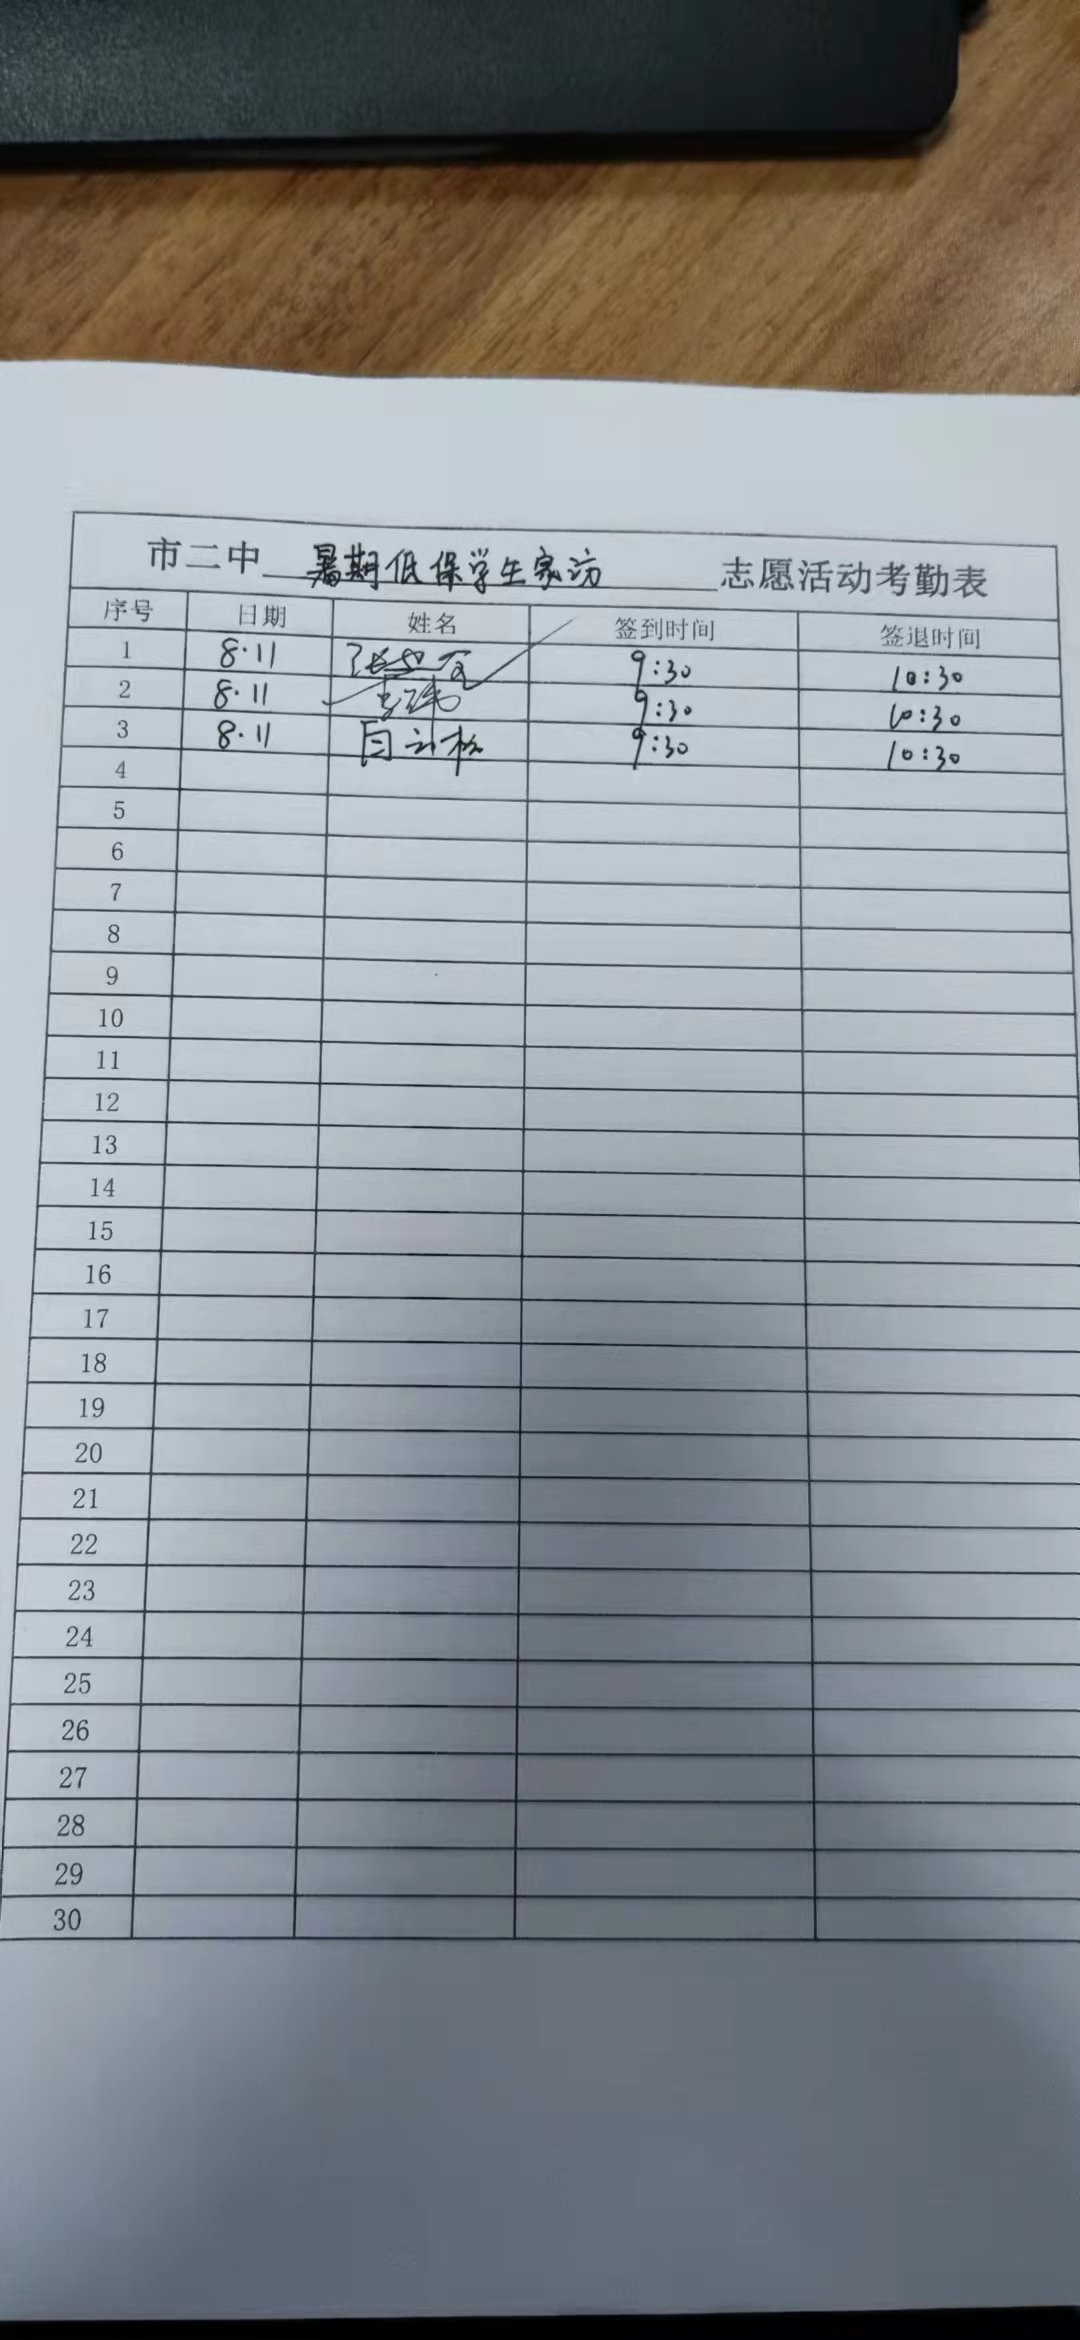 市二中 暑期低保学生家访 志愿活动考勤表
序号 日期 姓名 签到时间 签退时间
1 8.11 9:30 10:30
2 8.11 9:30 10:30
3 8.11 9:30 10:30
4
5
6
7
8
9
10
11
12
13
14
15
16
17
18
19
20
21
22
23
24
25
26
27
28
29
30